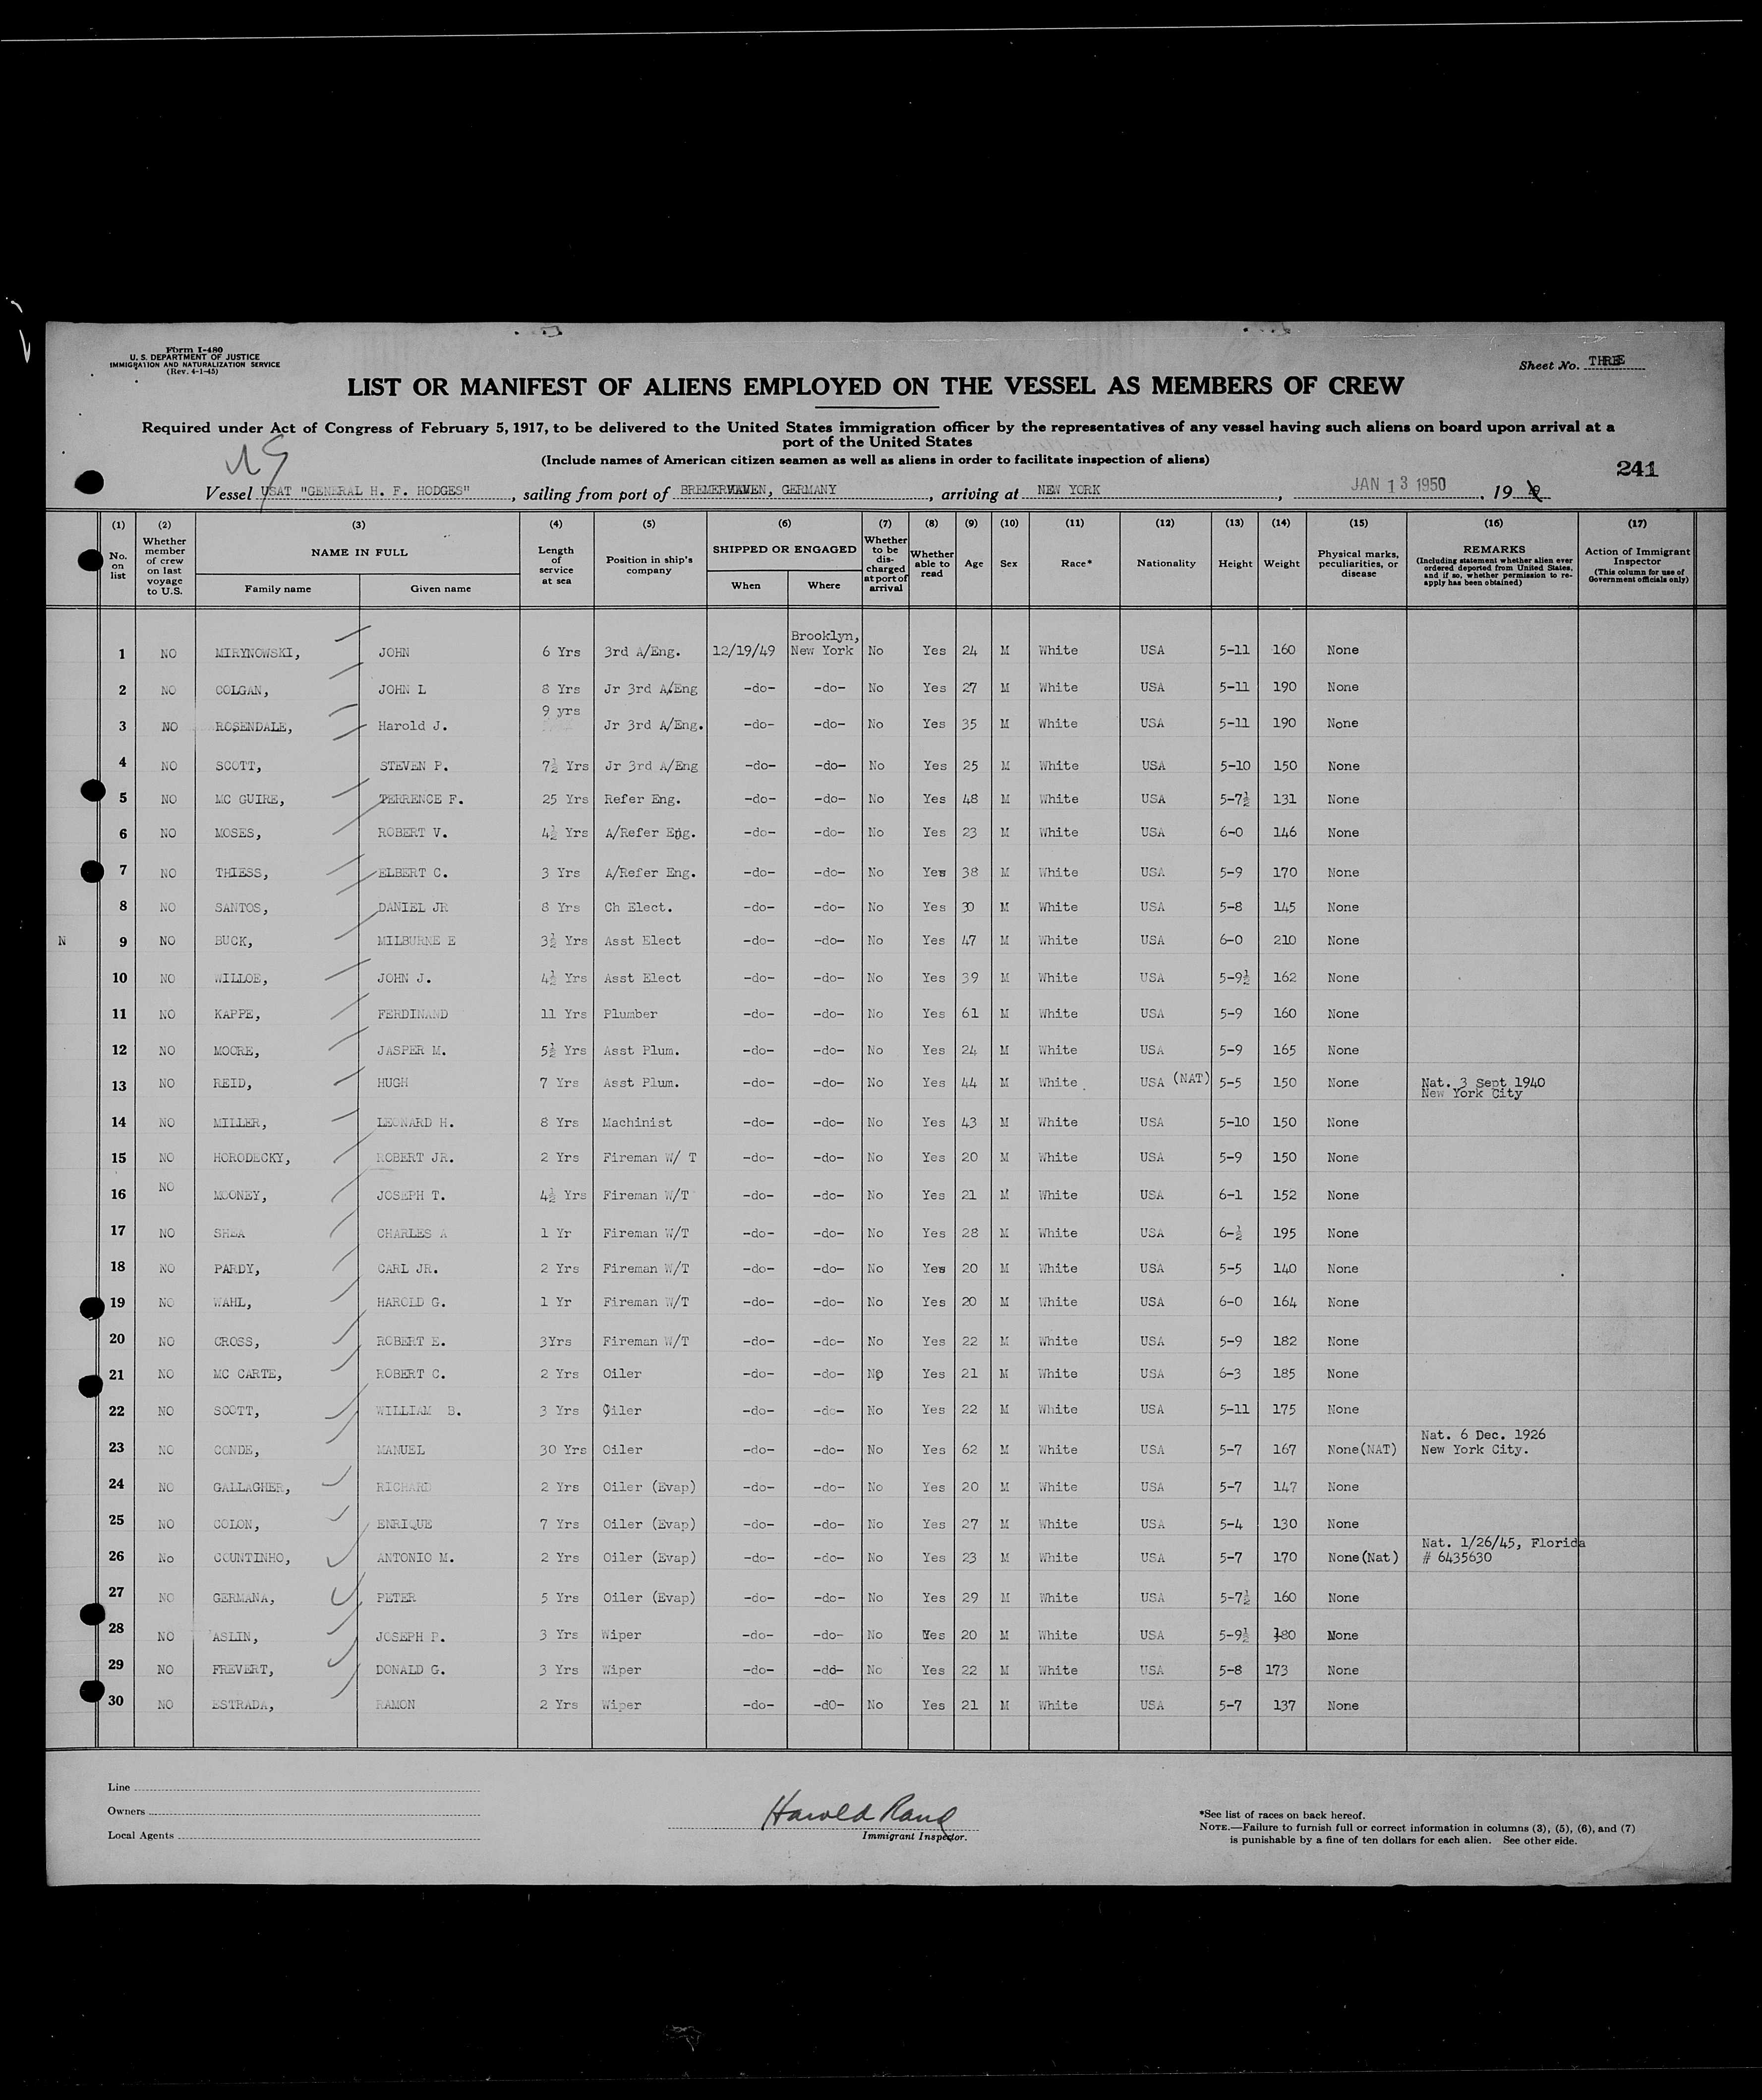 Form I-480
U. S. DEPARTMENT OF JUSTICE
IMMIGRATION AND NATURALIZATION SERVICE
(Rev. 4-1-45)
Sheet No. THREE
LIST OR MANIFEST OF ALIENS EMPLOYED ON THE VESSEL AS MEMBERS OF CREW
Required under Act of Congress of February 5, 1917, to be delivered to the United States immigration officer by the representatives of any vessel having such aliens on board upon arrival at a
port of the United States
(Include names of American citizen seamen as well as aliens in order to facilitate inspection of aliens)
241
Vessel USAT "GENERAL H. F. HODGES", sailing from port of BREMERHAVEN, GERMANY, arriving at NEW YORK, JAN 13 1950, 19
(1) (2) (3) (4) (5) (6) (7) (8) (9) (10) (11) (12) (13) (14) (15) (16) (17)
No. on list
Whether member of crew on last voyage to U.S.
NAME IN FULL
Family name Given name
Length of service at sea
Position in ship's company
SHIPPED OR ENGAGED
When Where
Whether to be discharged at port of arrival
Whether able to read
Age
Sex
Race*
Nationality
Height
Weight
Physical marks, peculiarities, or disease
REMARKS
(Including statement whether alien ever ordered deported from United States, and if so, whether permission to re-apply has been obtained)
Action of Immigrant Inspector
(This column for use of Government officials only)
1 NO MIRYNOWSKI, JOHN 6 Yrs 3rd A/Eng. 12/19/49 Brooklyn, New York No Yes 24 M White USA 5-11 160 None
2 NO COLGAN, JOHN L 8 Yrs Jr 3rd A/Eng -do- -do- No Yes 27 M White USA 5-11 190 None
3 NO ROSENDALE, Harold J. 9 yrs Jr 3rd A/Eng. -do- -do- No Yes 35 M White USA 5-11 190 None
4 NO SCOTT, STEVEN P. 7½ Yrs Jr 3rd A/Eng -do- -do- No Yes 25 M White USA 5-10 150 None
5 NO MC GUIRE, TERRENCE F. 25 Yrs Refer Eng. -do- -do- No Yes 48 M White USA 5-7½ 131 None
6 NO MOSES, ROBERT V. 4½ Yrs A/Refer Eng. -do- -do- No Yes 23 M White USA 6-0 146 None
7 NO THIESS, ELBERT C. 3 Yrs A/Refer Eng. -do- -do- No Yes 38 M White USA 5-9 170 None
8 NO SANTOS, DANIEL JR 8 Yrs Ch Elect. -do- -do- No Yes 30 M White USA 5-8 145 None
N 9 NO BUCK, MILBURNE E 3½ Yrs Asst Elect -do- -do- No Yes 47 M White USA 6-0 210 None
10 NO WILLOE, JOHN J. 4½ Yrs Asst Elect -do- -do- No Yes 39 M White USA 5-9½ 162 None
11 NO KAPPE, FERDINAND 11 Yrs Plumber -do- -do- No Yes 61 M White USA 5-9 160 None
12 NO MOORE, JASPER M. 5½ Yrs Asst Plum. -do- -do- No Yes 24 M White USA 5-9 165 None
13 NO REID, HUGH 7 Yrs Asst Plum. -do- -do- No Yes 44 M White USA (NAT) 5-5 150 None Nat. 3 Sept 1940 New York City
14 NO MILLER, LEONARD H. 8 Yrs Machinist -do- -do- No Yes 43 M White USA 5-10 150 None
15 NO HORODECKY, ROBERT JR. 2 Yrs Fireman W/ T -do- -do- No Yes 20 M White USA 5-9 150 None
16 NO MOONEY, JOSEPH T. 4½ Yrs Fireman W/T -do- -do- No Yes 21 M White USA 6-1 152 None
17 NO SHEA CHARLES A 1 Yr Fireman W/T -do- -do- No Yes 28 M White USA 6-½ 195 None
18 NO PARDY, CARL JR. 2 Yrs Fireman W/T -do- -do- No Yes 20 M White USA 5-5 140 None
19 NO WAHL, HAROLD G. 1 Yr Fireman W/T -do- -do- No Yes 20 M White USA 6-0 164 None
20 NO CROSS, ROBERT E. 3Yrs Fireman W/T -do- -do- No Yes 22 M White USA 5-9 182 None
21 NO MC CARTE, ROBERT C. 2 Yrs Oiler -do- -do- No Yes 21 M White USA 6-3 185 None
22 NO SCOTT, WILLIAM B. 3 Yrs Oiler -do- -do- No Yes 22 M White USA 5-11 175 None
23 NO CONDE, MANUEL 30 Yrs Oiler -do- -do- No Yes 62 M White USA 5-7 167 None(NAT) Nat. 6 Dec. 1926 New York City.
24 NO GALLAGHER, RICHARD 2 Yrs Oiler (Evap) -do- -do- No Yes 20 M White USA 5-7 147 None
25 NO COLON, ENRIQUE 7 Yrs Oiler (Evap) -do- -do- No Yes 27 M White USA 5-4 130 None
26 No COUNTINHO, ANTONIO M. 2 Yrs Oiler (Evap) -do- -do- No Yes 23 M White USA 5-7 170 None(Nat) Nat. 1/26/45, Florida # 6435630
27 NO GERMANA, PETER 5 Yrs Oiler (Evap) -do- -do- No Yes 29 M White USA 5-7½ 160 None
28 NO ASLIN, JOSEPH P. 3 Yrs Wiper -do- -do- No Yes 20 M White USA 5-9½ 180 None
29 NO FREVERT, DONALD G. 3 Yrs Wiper -do- -do- No Yes 22 M White USA 5-8 173 None
30 NO ESTRADA, RAMON 2 Yrs Wiper -do- -dO- No Yes 21 M White USA 5-7 137 None
Line
Owners
Local Agents
Harold Rand
Immigrant Inspector.
*See list of races on back hereof.
NOTE.—Failure to furnish full or correct information in columns (3), (5), (6), and (7)
is punishable by a fine of ten dollars for each alien. See other side.